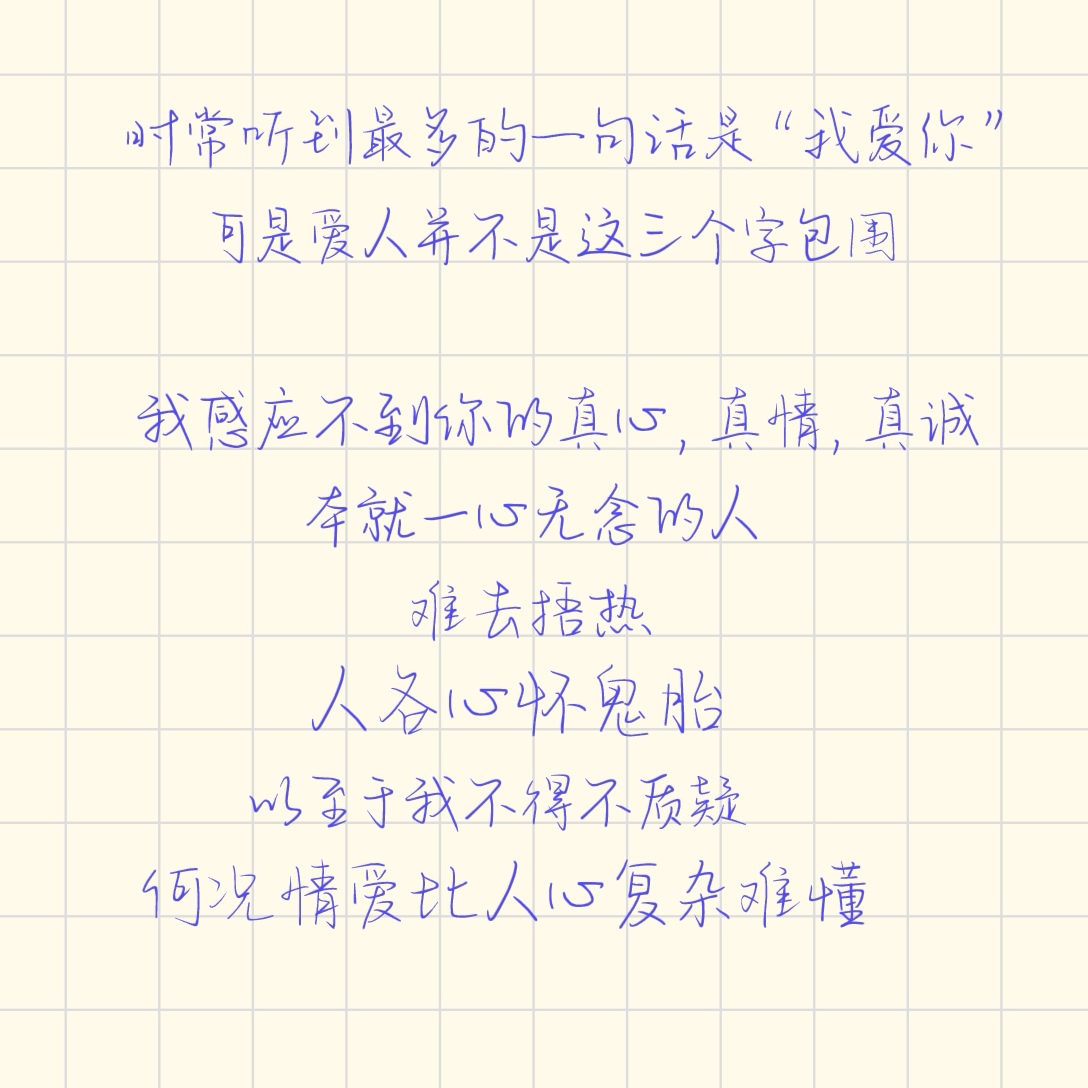 时常听到最多的一句话是“我爱你”
可是爱人并不是这三个字包围
我感应不到你的真心,真情,真诚
本就一心无念的人
难去捂热
人各心怀鬼胎
以至于我不得不质疑
何况情爱比人心复杂难懂